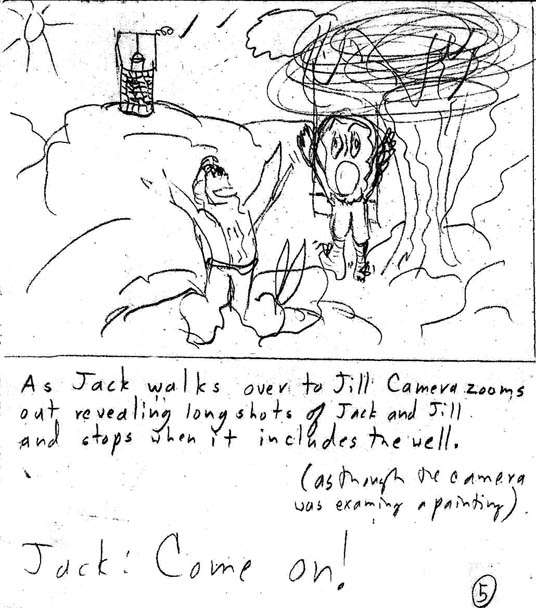 As Jack walks over to Jill Camera zooms
out revealing long shots of Jack and Jill
and stops when it includes the well.
(as though the camera
was examing a painting).
Jack: Come on!
5